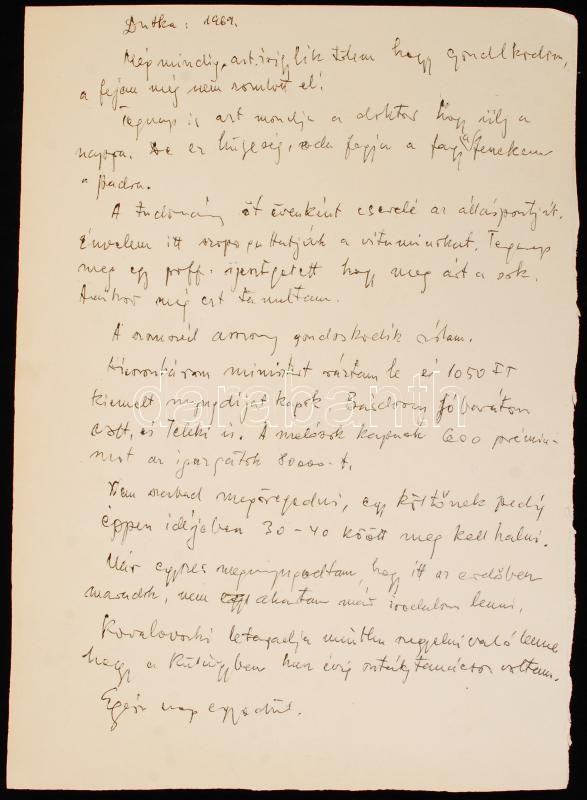 Dutka: 1969.
Még mindig azt irigylik tőlem hogy gondolkodom,
a fejem még nem romlott el!
Tegnap is azt mondja a doktor hogy ülj a
napra. De ez hülyeség, oda fagy a fenekem
a padra.
A tudomány öt évenként cseréli az álláspontját.
Énvelem itt szopogattatják a vitaminokat. Tegnap
meg egy proff. ijesztgetett hogy meg árt a sok.
Amikor még ezt tanultam.
A szomszéd asszony gondoskodik rólam.
Huszonhárom minisztert váztam le és 1050 Ft
kiemelt nyugdíjat kapok Bárdossy jóbarátom
volt, és Teleki is. A melósok kapnak 600 prémiu-
mot az igazgatók 80000-t.
Nem szabad megöregedni, egy költőnek pedig
éppen idejében 30-40 között meg kell halni.
Már egyszer megnyugodtam, hogy itt az erdőben
maradok, nem akartam már irodalom lenni.
Kovalovszki letagadja mintha szégyelni való lenne
hogy a Külügyben húsz évig osztálytanácsos voltam.
Egész nap egyedül.
darabanth